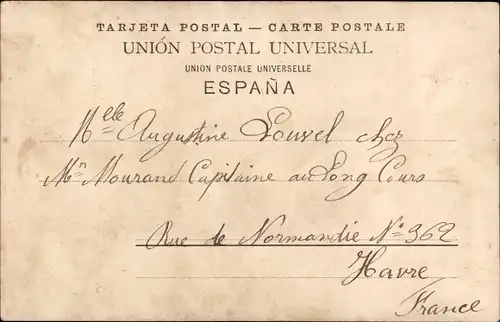 TARJETA POSTAL — CARTE POSTALE
UNIÓN POSTAL UNIVERSAL
UNION POSTALE UNIVERSELLE
ESPAÑA
Melle Augustine Louvel chez
Mn Mourand Capitaine au Long Cours
Rue de Normandie No 362
Havre
France